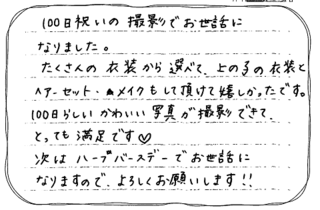 100日祝いの撮影でお世話に
なりました。
たくさんの衣装から選べて、上の子の衣装と
ヘアーセット・メイクもして頂けて嬉しかったです。
100日らしいかわいい写真が撮影できて、
とっても満足です♡
次はハーフバースデーでお世話に
なりますので、よろしくお願いします!!